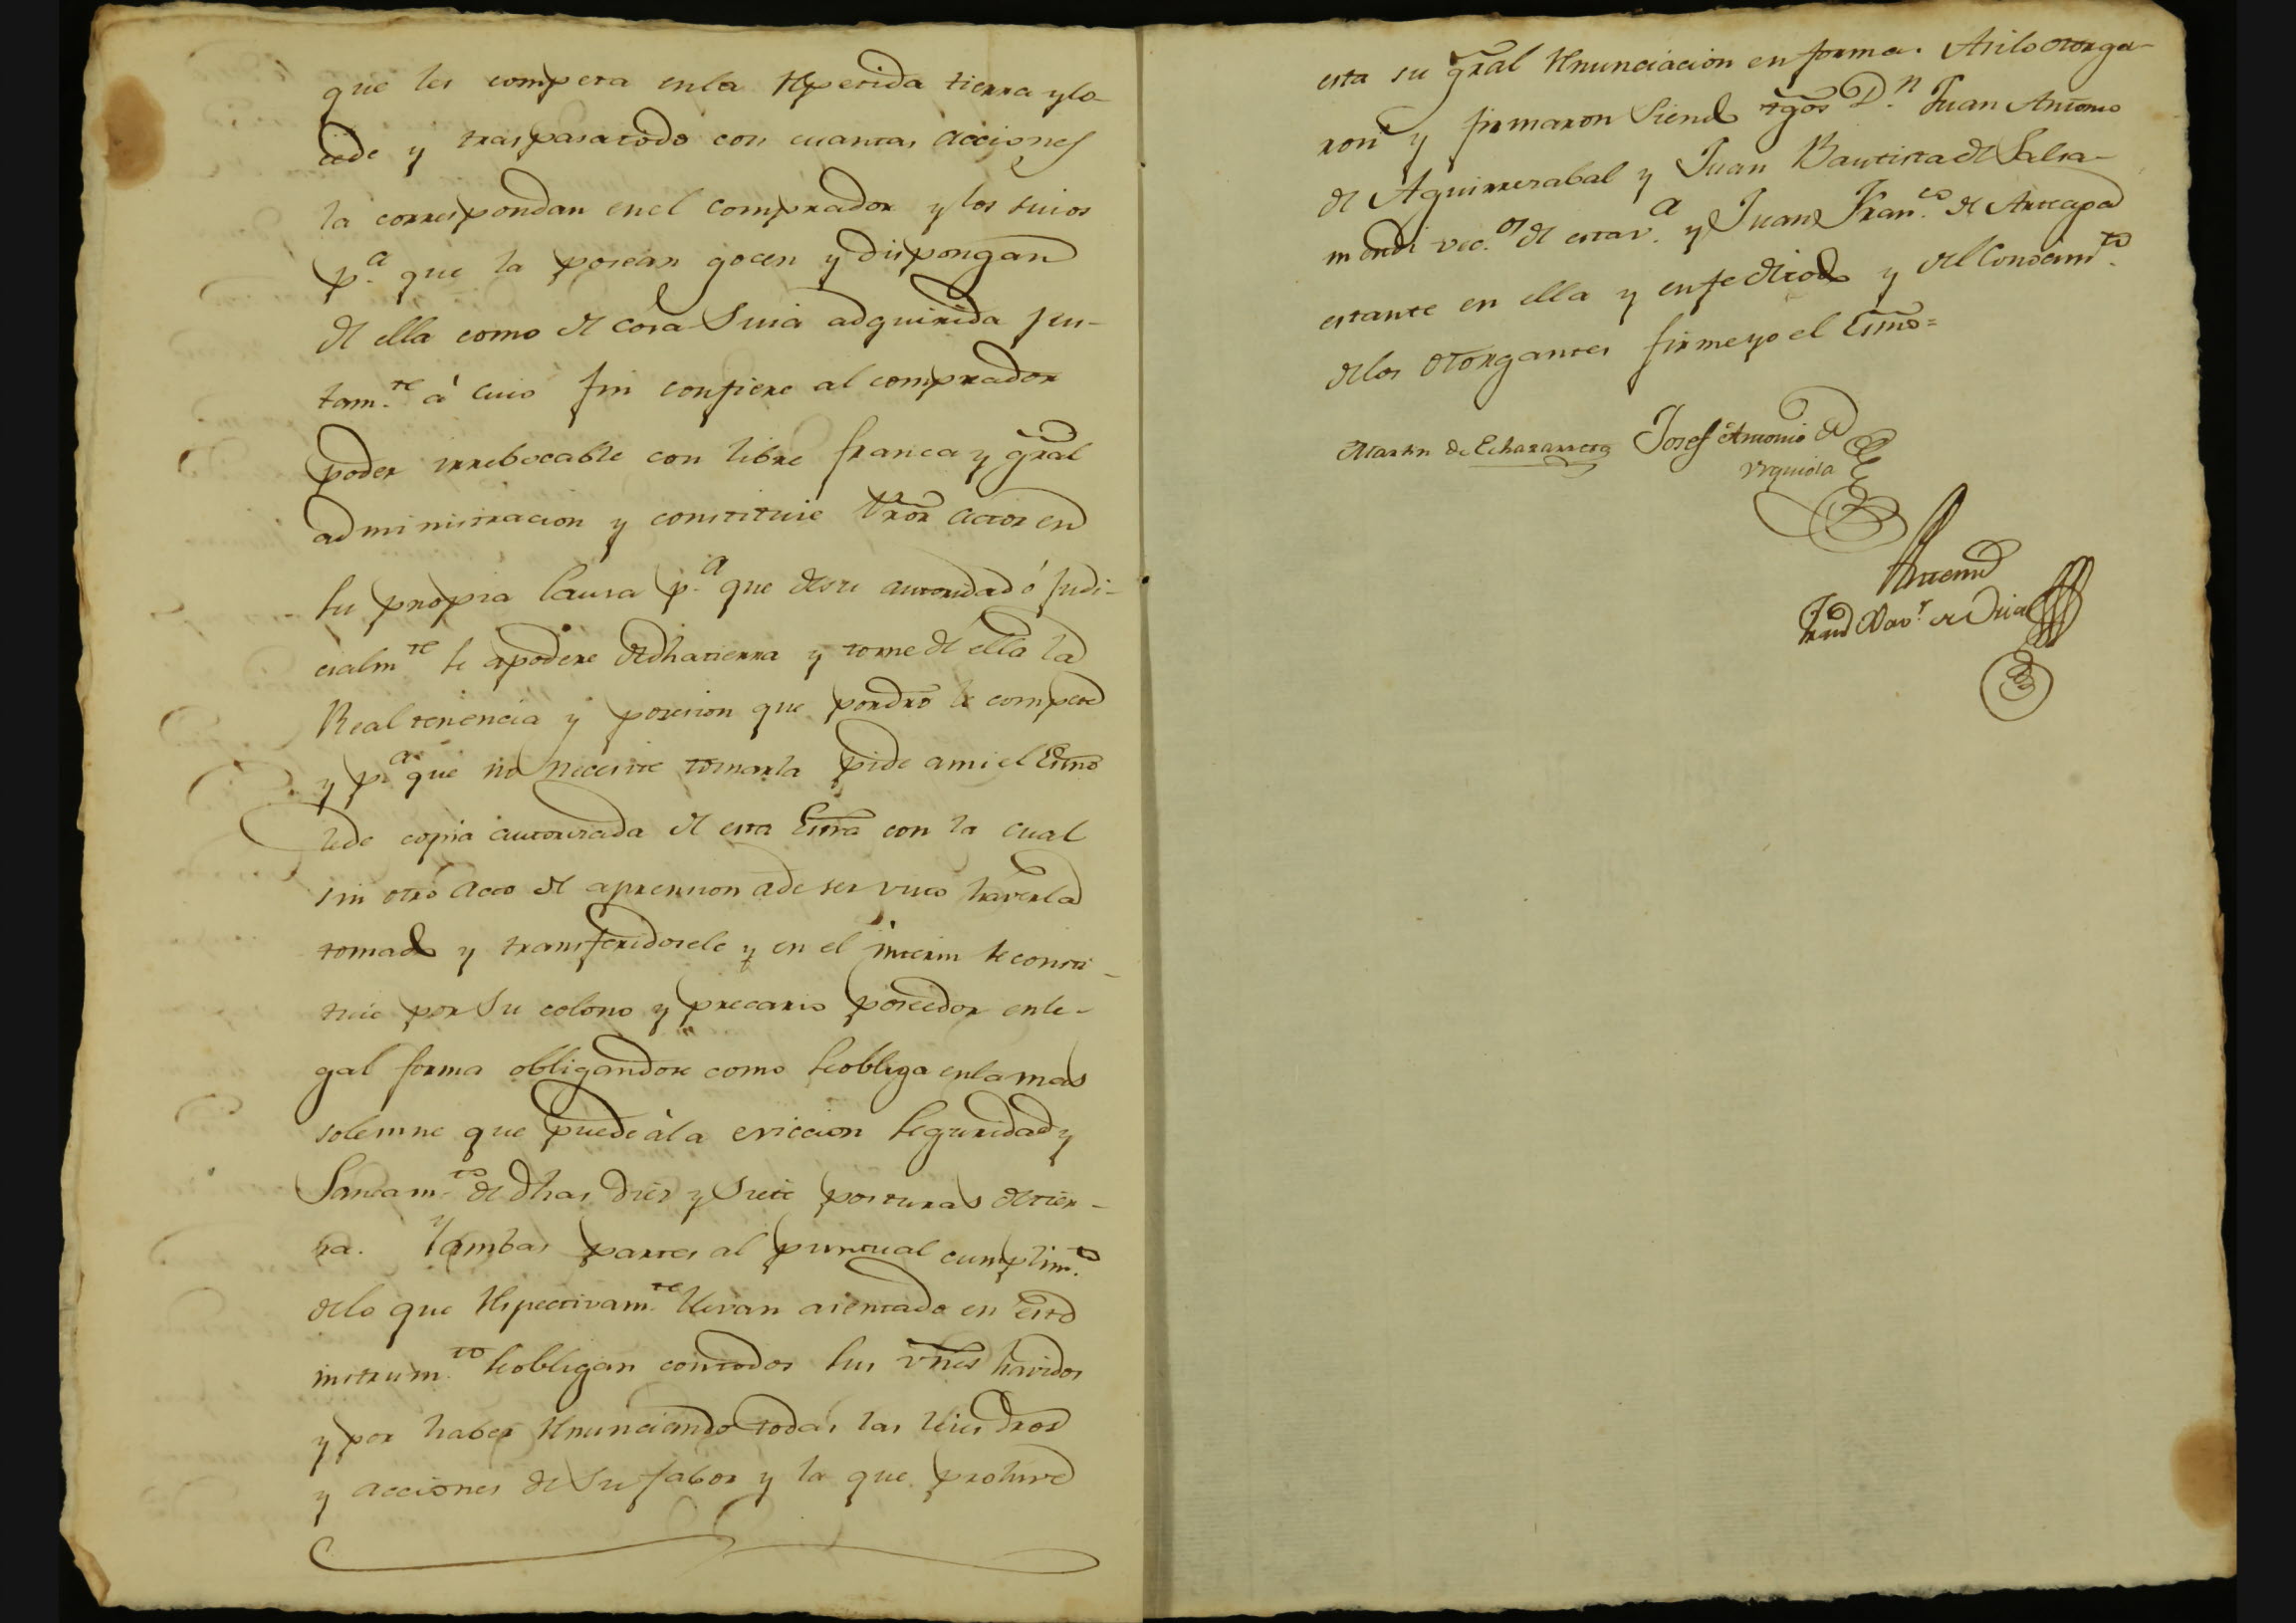 que les compera en la Rperida tierra y lo
cede y traspasa todo con cuantas acciones
la correspondan en el comprador y los suios
p.ª que la posean gocen y dispongan
de ella como de cosa Suia adquirida jus-
tam.te à cuio fin confiere al comprador
poder irrebocable con libre franca y gral
administracion y constituie Pror actor en
su propia Causa p.ª que de su autoridad ó Judi-
cialm.te se apodere de dha tierra y tome de ella la
Real tenencia y posesion que por dro le compete
y p.ª que no necesite tomarla pide a mi el Essno
le de copia autorizada de esta Essra con la cual
sin otro acto de aprension a de ser visto haverla
tomado y transferidosele y en el interin se consti-
tuie por Su colono y precario poseedor en le-
gal forma obligandose como se obliga en la mas
solemne que puede à la eviccion seguridad y
Saneam.to de dhas diez y Siete posturas de tier-
ra. Y ambas partes al puntual cumplim.to
de lo que Rspectivam.te llevan asentado en este
instrum.to se obligan con todos sus vnes havidos
y por haber Rnunciando todas las leies dros
y acciones de Su fabor y la que prohive
esta su gral Rnunciacion en forma. Asi lo otorga-
ron y firmaron Siendo tgos D.n Juan Antonio
de Aguirresabal y Juan Bautista de Salsa-
mendi vec.os de esta v.ª y Juan Fran.co de Arteaga
estante en ella y en fe de todo y del Conocim.to
de los otorgantes firme yo el Essno=
Martin de Echazarreta Josef Antonio de
Urquiola
Antemi